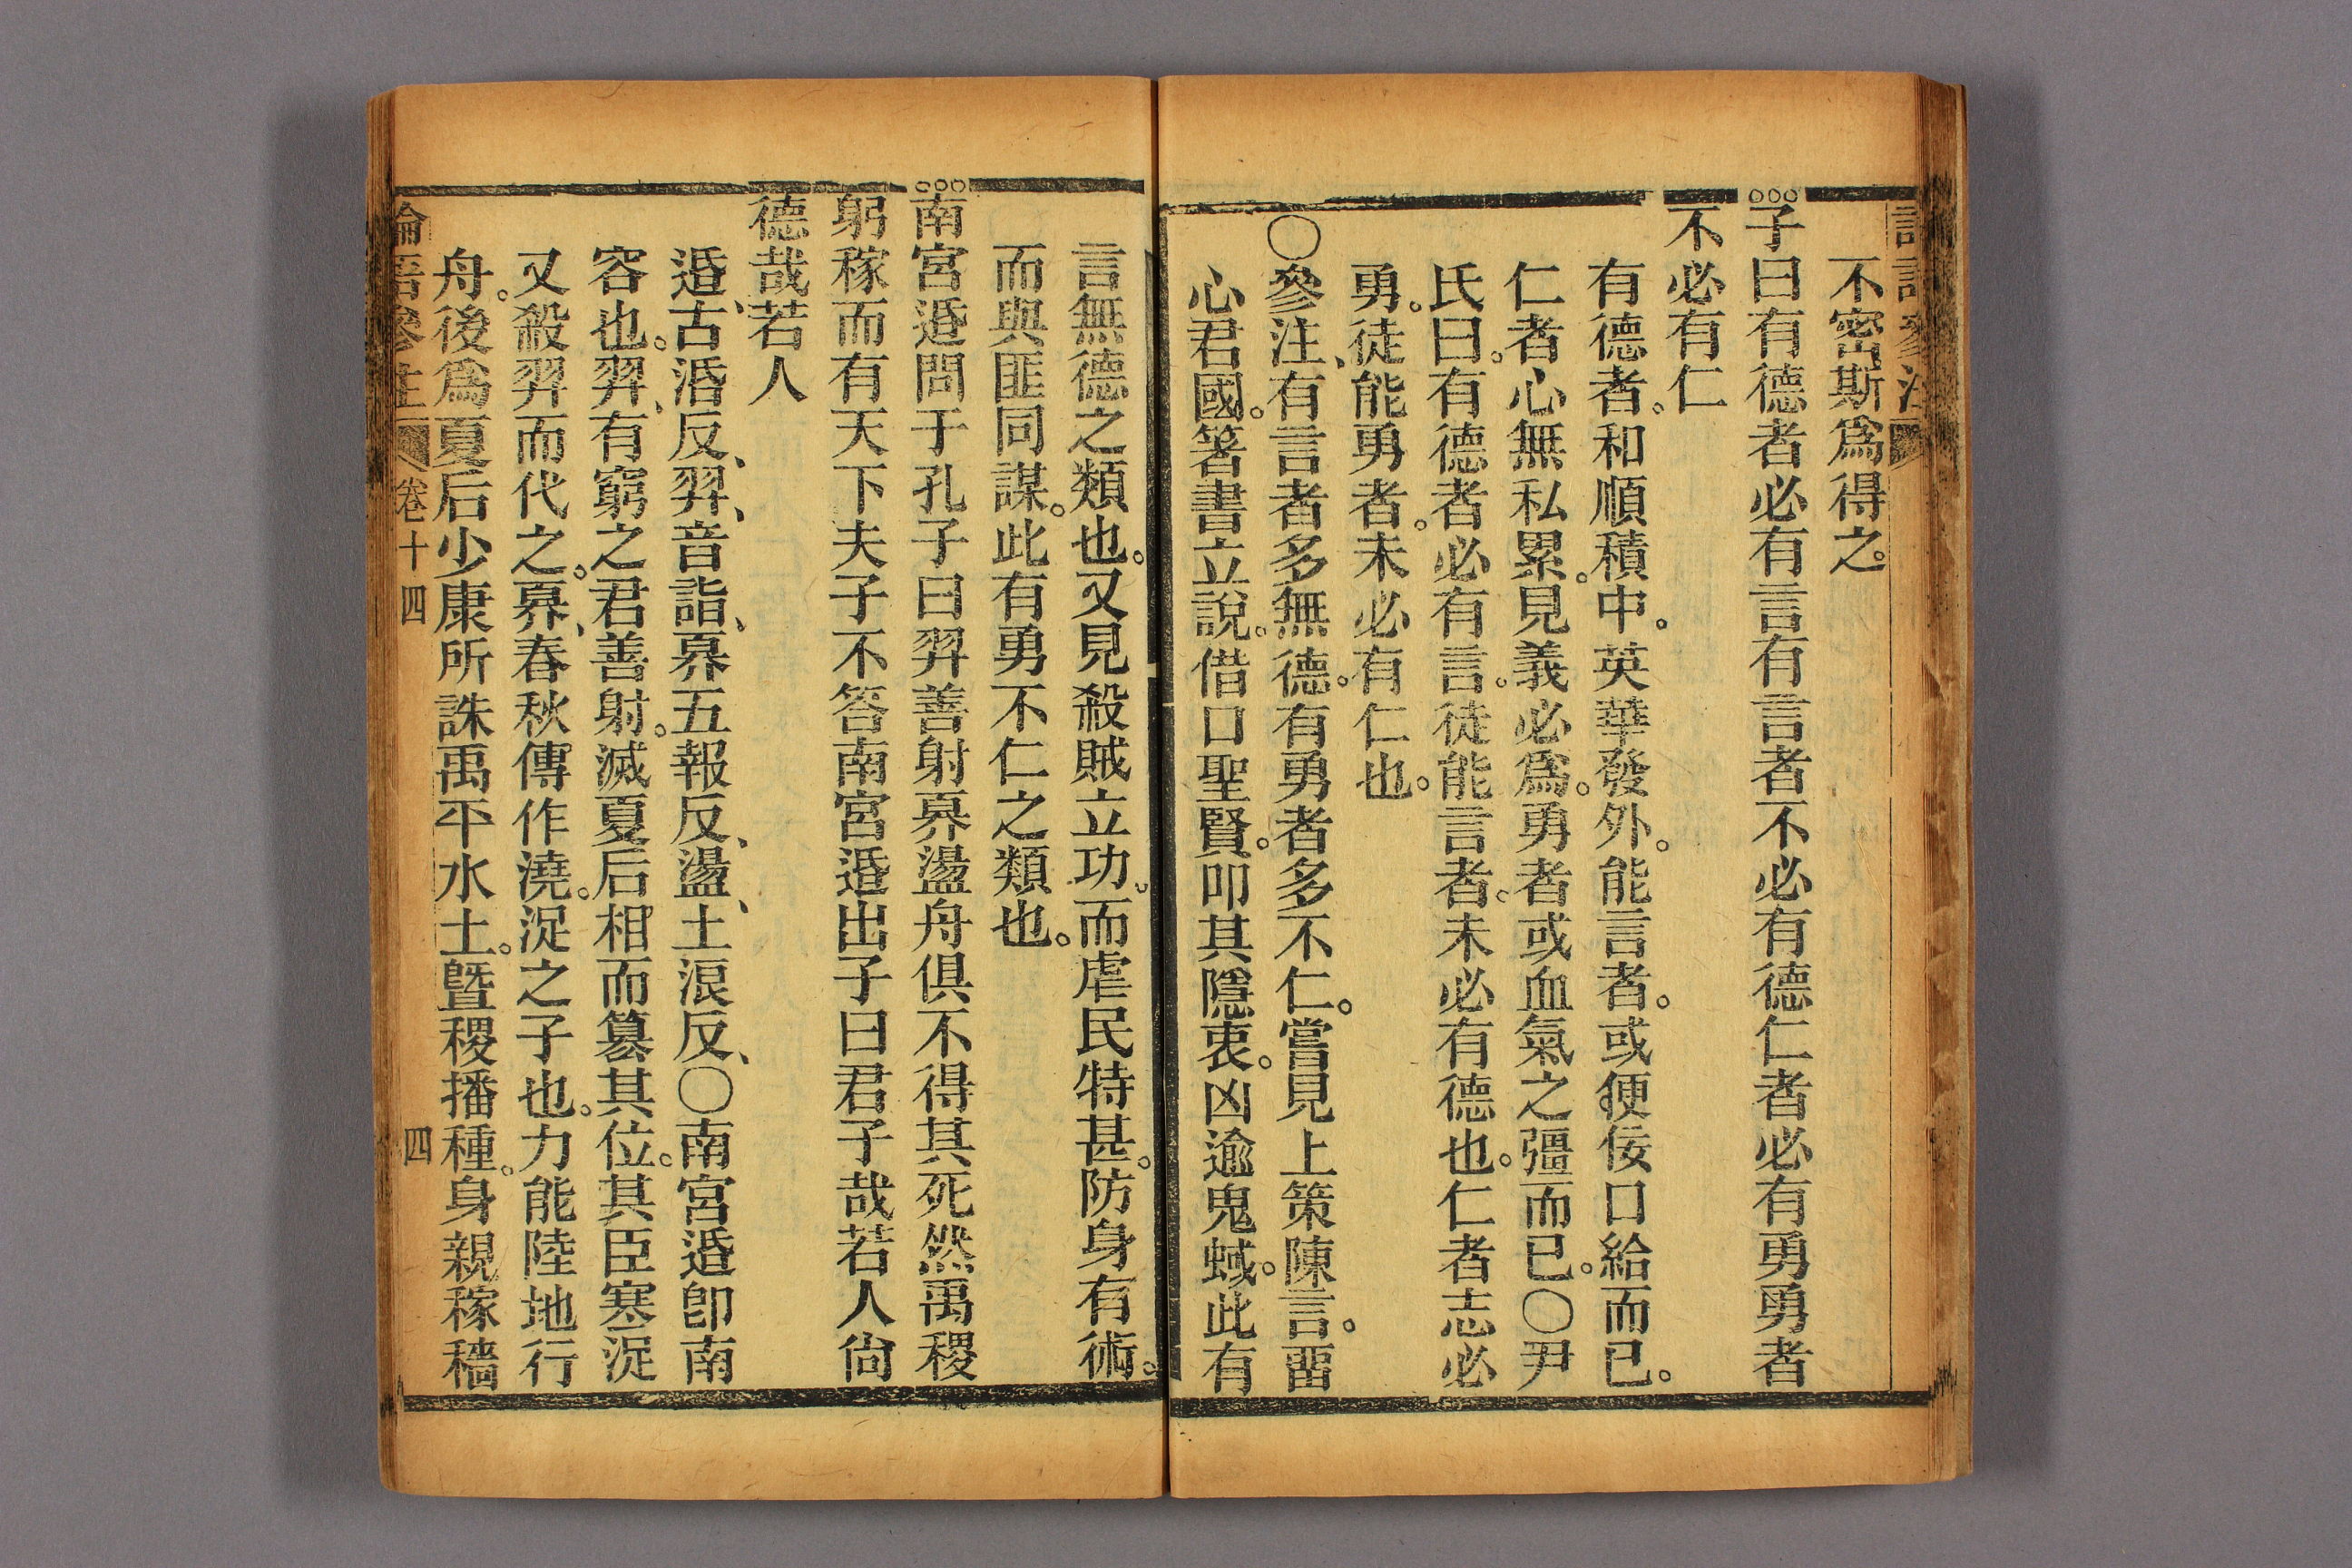 不密斯爲得之。
子曰有德者必有言有言者不必有德仁者必有勇勇者
不必有仁
有德者。和順積中。英華發外。能言者。或便佞口給而已。
仁者心無私累。見義必爲。勇者或血氣之彊而已。〇尹
氏曰。有德者必有言。徒能言者。未必有德也。仁者志必
勇。徒能勇者。未必有仁也。
〇參注、有言者多無德。有勇者多不仁。嘗見上策陳言。畱
心君國。箸書立說。借口聖賢。叩其隱衷。凶逾鬼蜮。此有
言無德之類也。又見殺賊立功。而虐民特甚。防身有術。
而與匪同謀。此有勇不仁之類也。
南宮适問于孔子曰羿善射奡盪舟俱不得其死然禹稷
躬稼而有天下夫子不答南宮适出子曰君子哉若人尙
德哉若人
适、古活反、羿、音詣、奡五報反、盪、土浪反、〇南宮适卽南
容也。羿、有窮之君善射。滅夏后相而篡其位。其臣寒浞
又殺羿而代之。奡、春秋傳作澆。浞之子也。力能陸地行
舟。後爲夏后少康所誅禹平水土。曁稷播種。身親稼穡
論語參注 卷十四 四